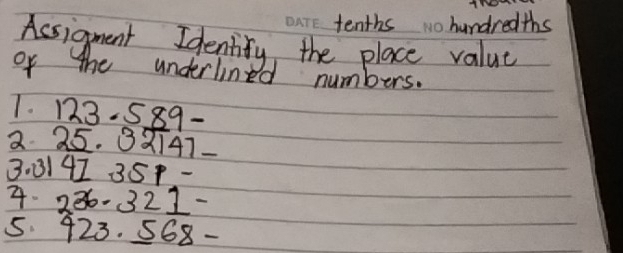 DATE tenths NO. hundredths
Assignment Identify the place value
of the underlined numbers.
1. 123.589-
2. 25.32147-
4. 236.321-
5. 423.568-